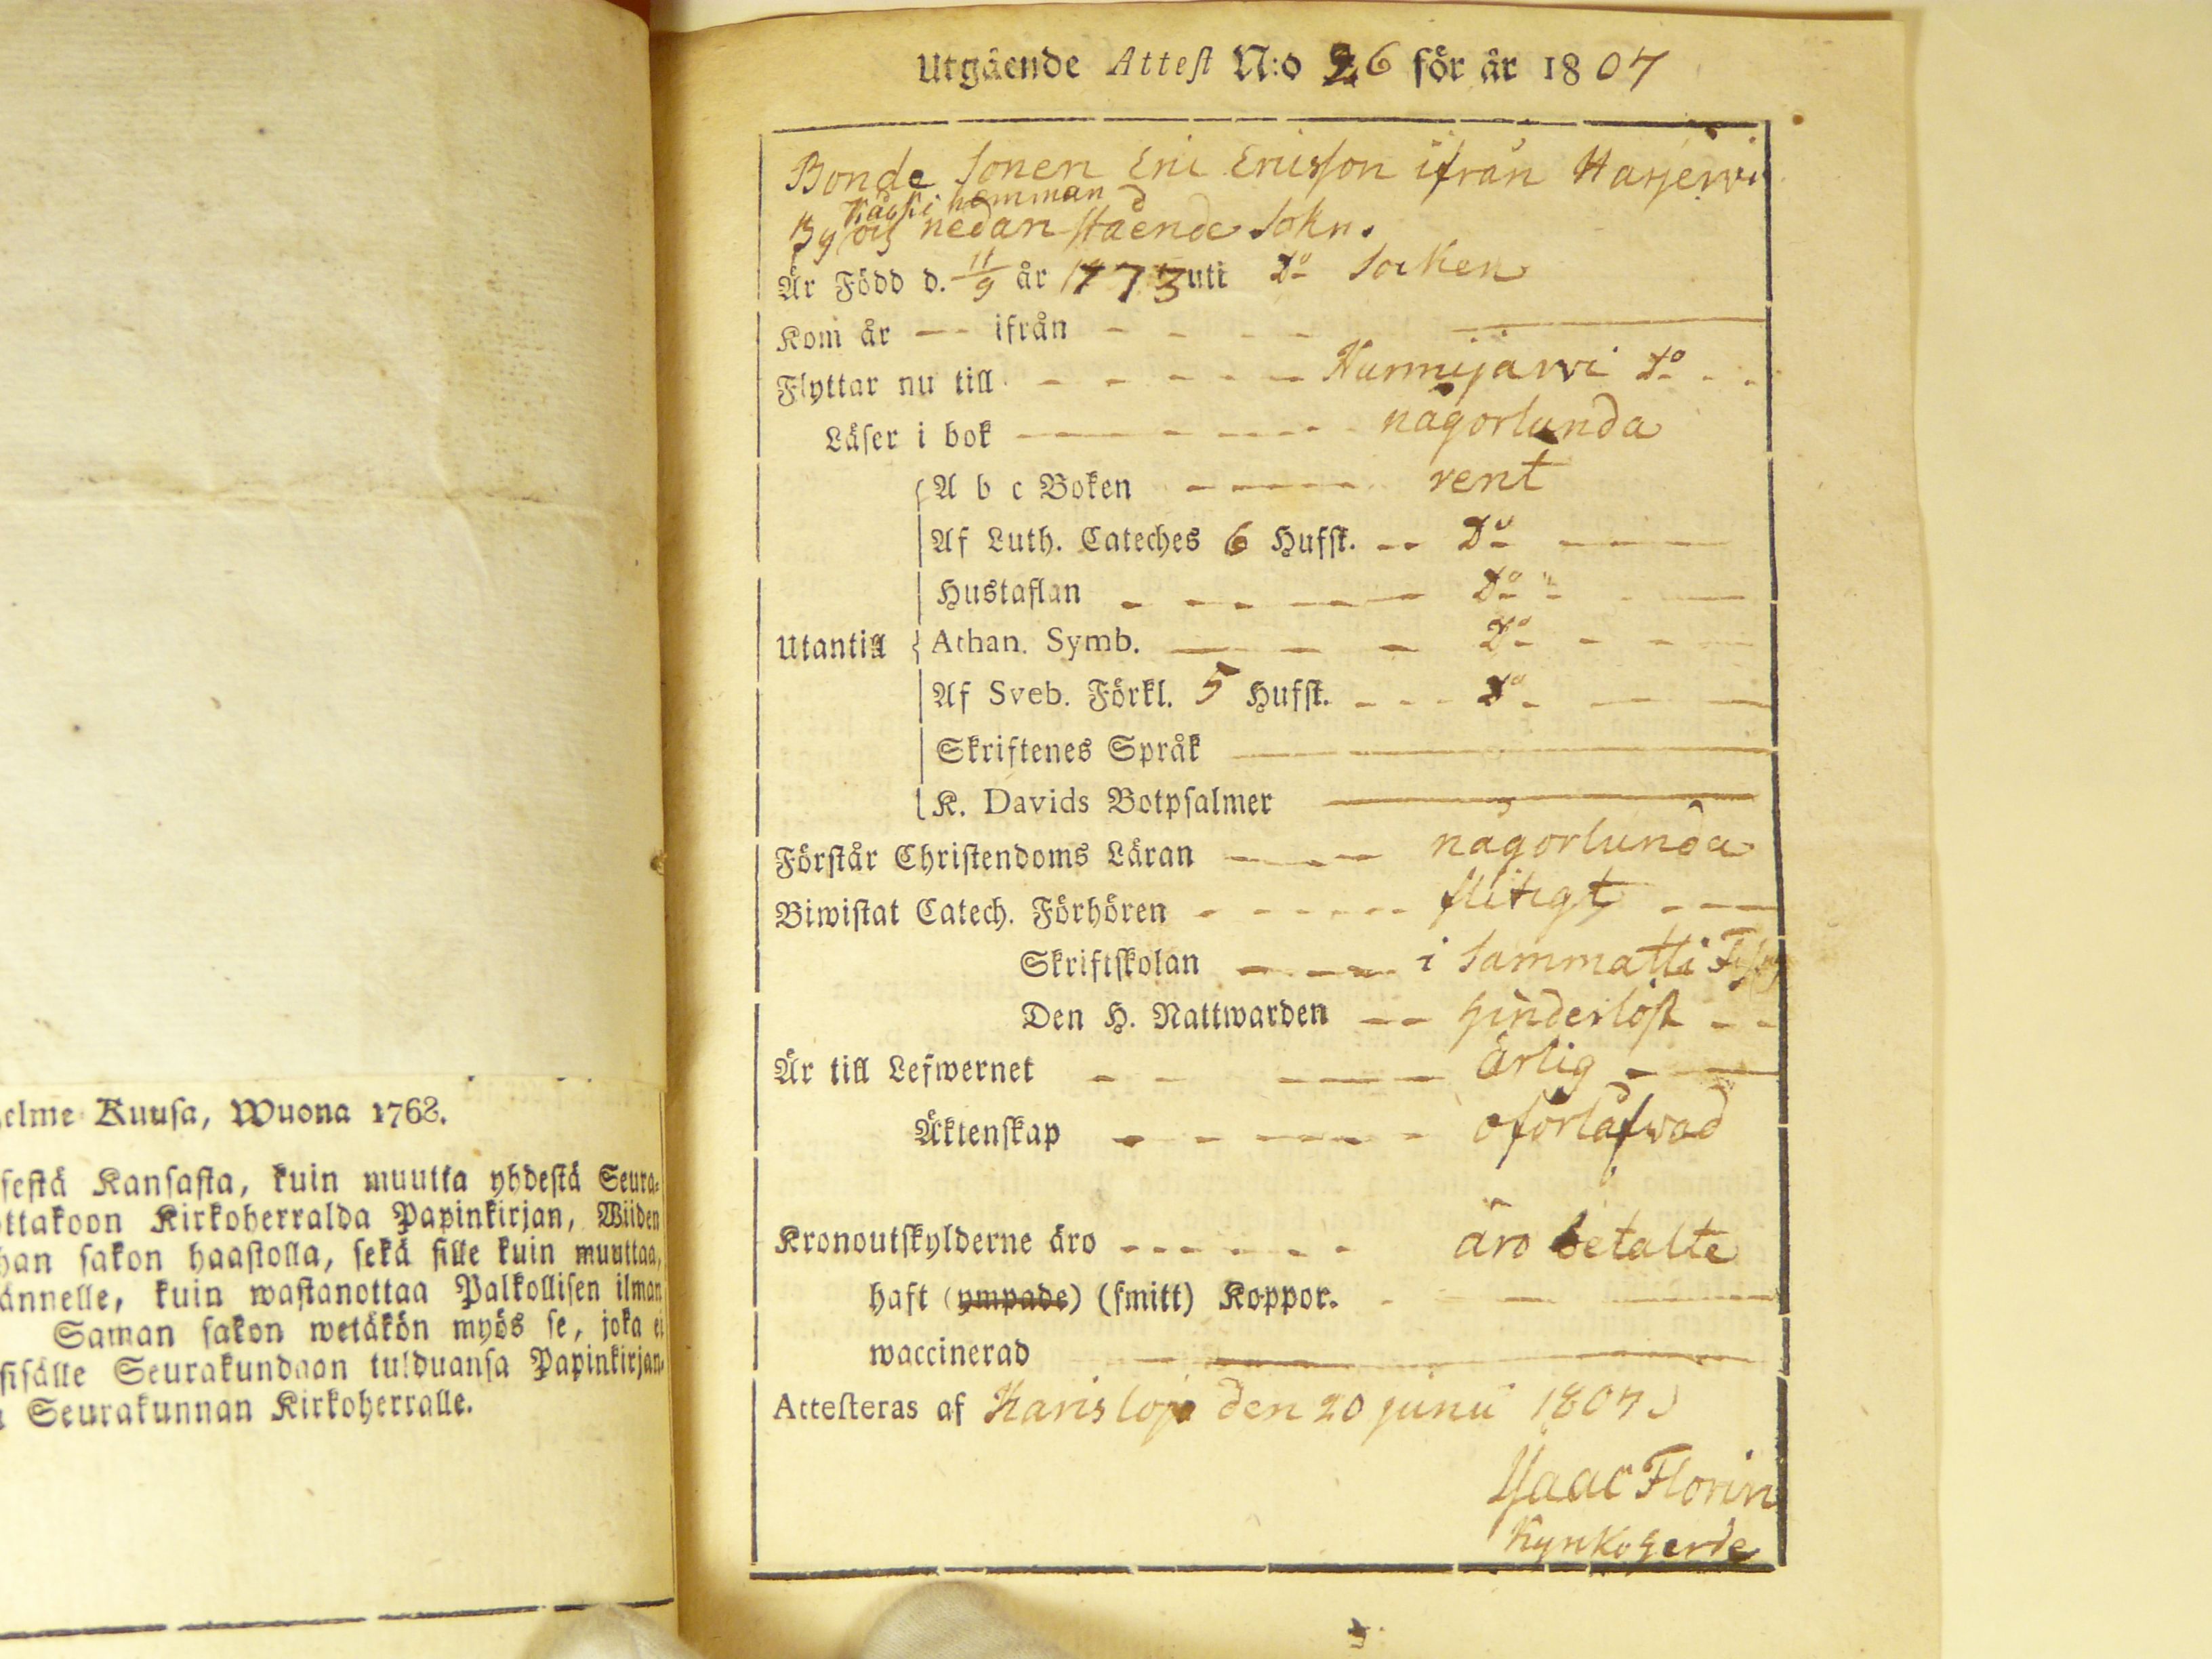 elme Kuusa, Wuona 1768.
sestä Kansasta, kuin muutta yhdestä Seura-
ottakoon Kirkoherralda Papinkirjan, Wiiden
han sakon haastolla, sekä sille kuin muuttaa,
ännelle, kuin wastanottaa Palkollisen ilman
Saman sakon wetäkön myös se, joka ei
sisälle Seurakundaan tulduansa Papinkirjan-
Seurakunnan Kirkoherralle.
Utgående Attest N:o 26 för år 1807
Bonde Sonen Eric Ericsson ifrån Harjerwi
hemman
By och nedan stående Sokn.
Är Född d. 11/9 år 1773 uti Do Socken
Kom år — ifrån
Flyttar nu till Nurmijarwi Do
Läser i bok någorlunda
A b c Boken rent
Af Luth. Cateches 6 Hufst. Do
Hustaflan Do
Utantill Athan. Symb. Do
Af Sveb. Förkl. 5 Hufst. Do
Skriftenes Språk
K. Davids Botpsalmer
Förstår Christendoms Läran någorlunda
Biwistat Catech. Förhören flitigt
Skriftskolan i Sammatti
Den H. Nattwarden hinderlöst
Är till Lefwernet ärlig
Äktenskap oförlåfwad
Kronoutskylderne äro äro betalte
haft (ympade) (smitt) Koppor.
waccinerad
Attesteras af Karislojo den 20 junii 1807
Isaac Florin
Kyrkoherde